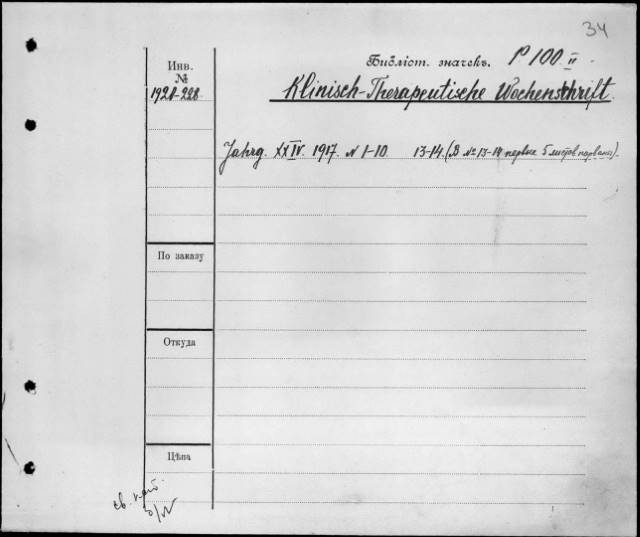 34
Инв.
№
1920-228
Библіот. значекъ. P 100 II
Klinisch-Therapeutische Wochenschrift.
Jahrg. XXIV. 1917. N 1-10 13-14. (В № 13-14 первые 5 листов порваны).
По заказу
Откуда
Цѣна